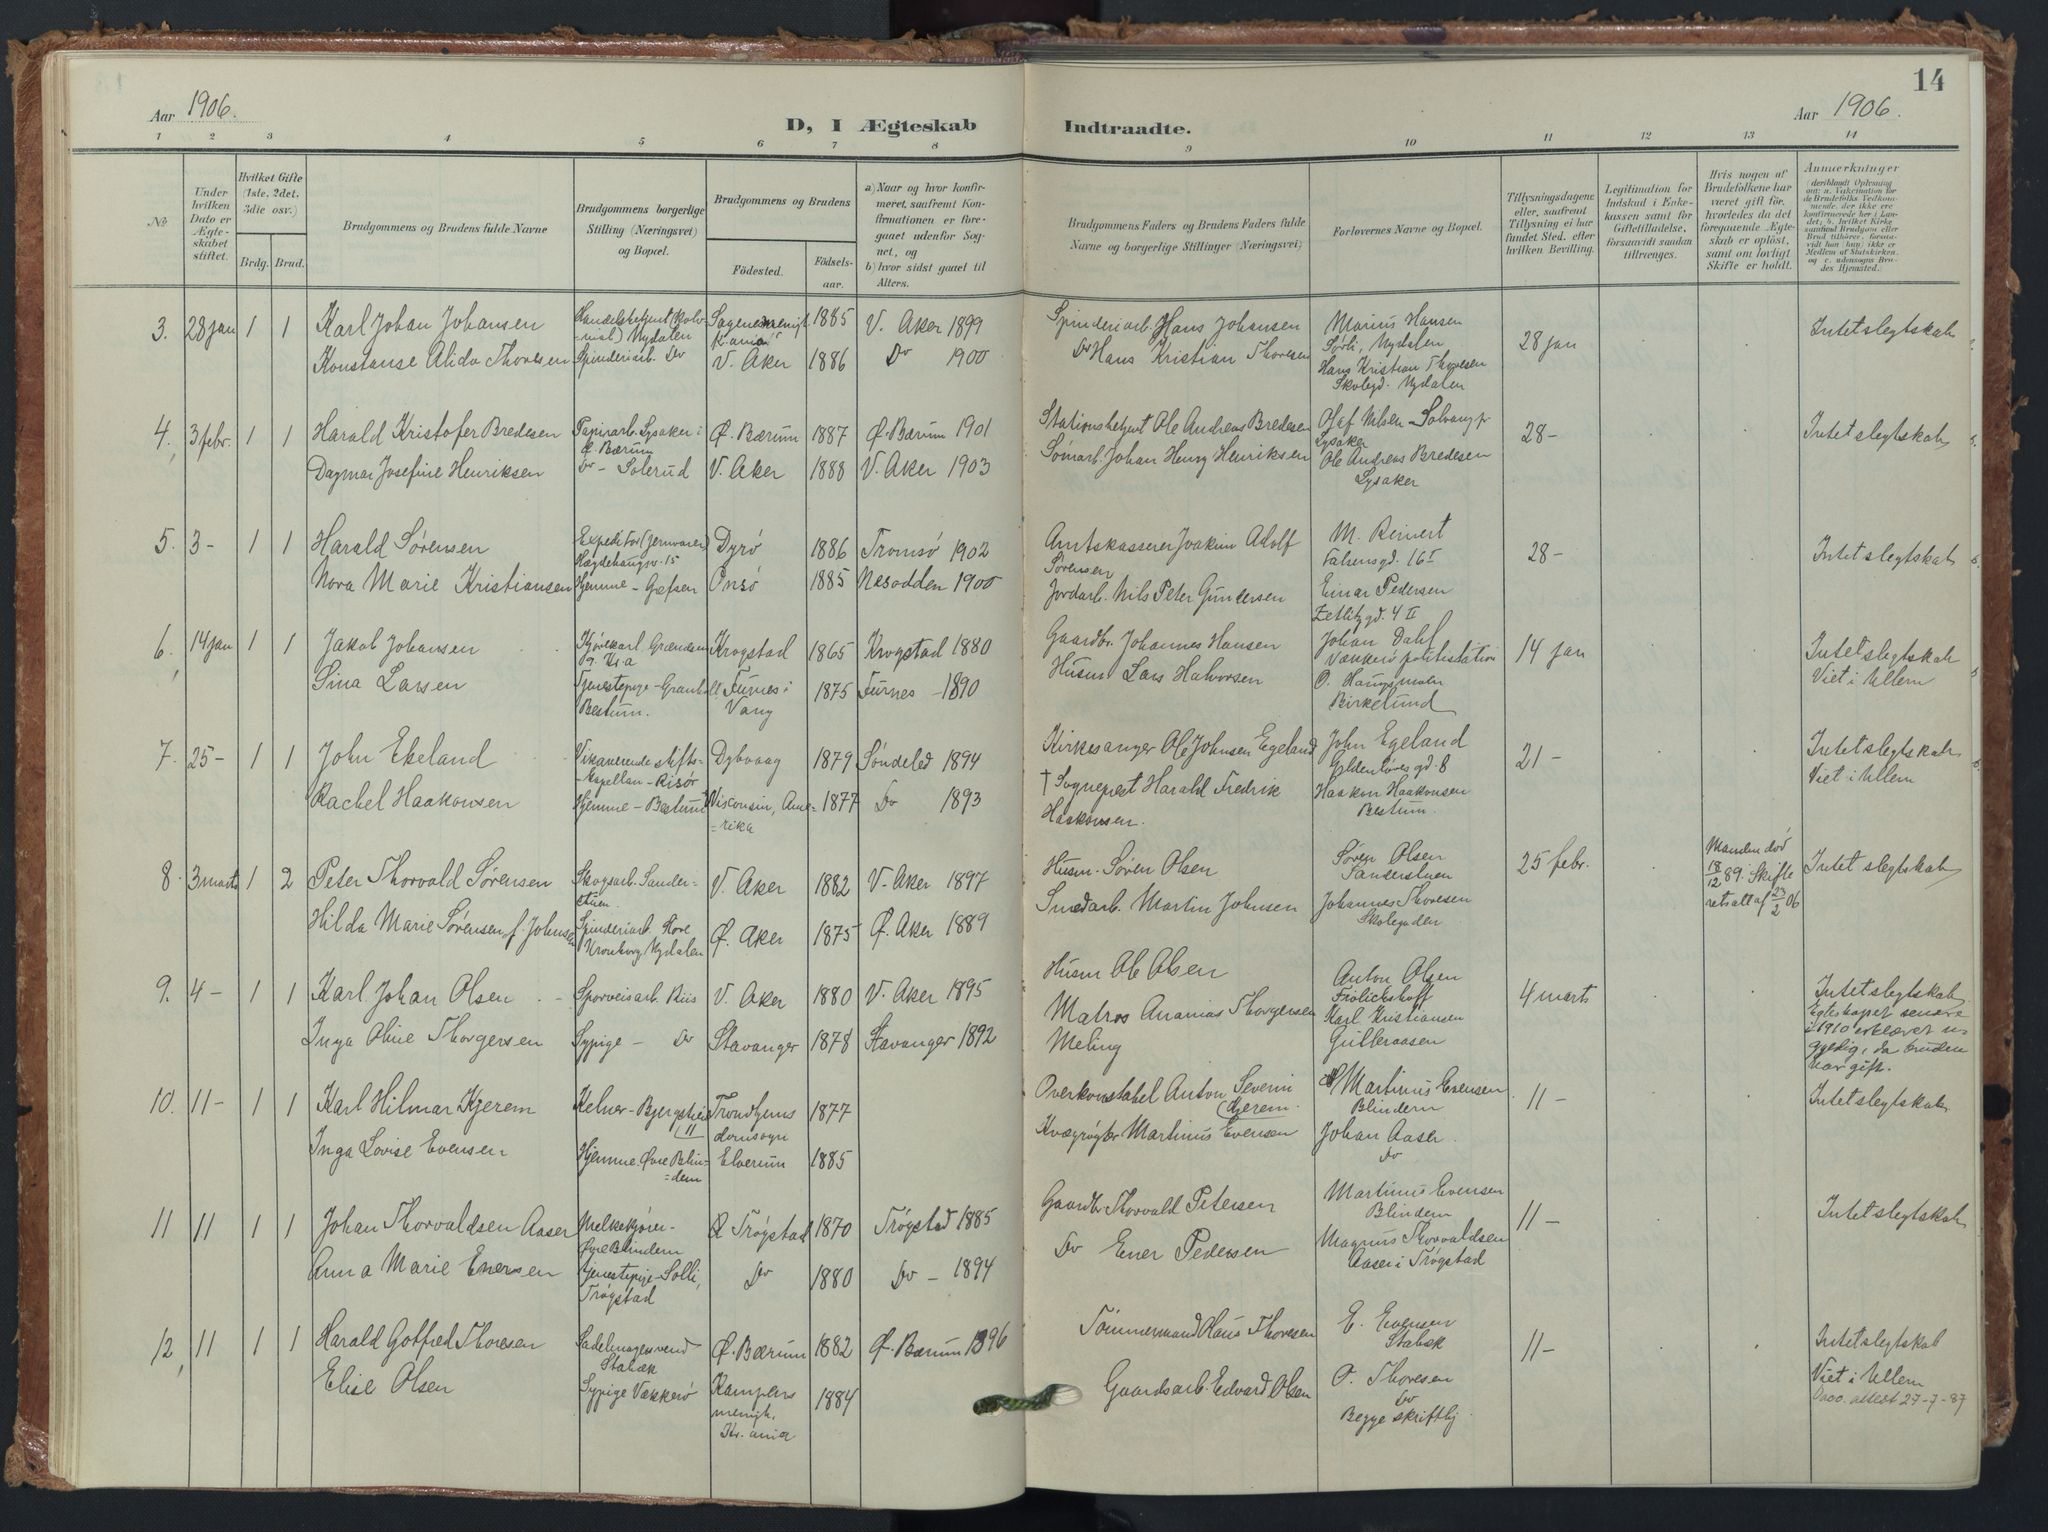 14
Aar 1906.
D, I Ægteskab Indtraadte.
Aar 1906.
1 2 3 4 5 6 7 8 9 10 11 12 13 14
No
Under hvilken Dato er Ægteskabet stiftet.
Hvilket Gifte (1ste, 2det, 3die osv.)
Brdg. Brud.
Brudgommens og Brudens fulde Navne
Brudgommens borgerlige Stilling (Næringsvei) og Bopæl.
Brudgommens og Brudens
Fødested. Fødselsaar.
a) Naar og hvor konfirmeret, saafremt Konfirmationen er foregaaet udenfor Sognet, og
b) hvor sidst gaaet til Alters.
Brudgommens Faders og Brudens Faders fulde Navne og borgerlige Stillinger (Næringsvei)
Forlovernes Navne og Bopæl.
Tillysningsdagene eller, saafremt Tillysning ei har fundet Sted, efter hvilken Bevilling.
Legitimation for Indskud i Enkekassen samt for Giftetilladelse, forsaavidt saadan tiltrænges.
Hvis nogen af Brudefolkene har været gift før, hvorledes da det foregaaende Ægteskab er opløst, samt om lovligt Skifte er holdt.
Anmerkninger
3. 28 jan 1 1 Karl Johan Johansen Nydalen 1885 V. Aker 1899 Spinderiarb. Hans Johansen Marius Hansen Sørli, Nydalen 28 jan Intet slegtskab
Konstanse Alida Thoresen Spinderiarb. Do V. Aker 1886 Do 1900 Do Hans Kristian Thoresen Hans Kristian Thoresen Skolegd. Nydalen
4. 3 febr. 1 1 Harald Kristofer Bredesen Papirarb. Lysaker i Ø. Bærum Ø. Bærum 1887 Ø. Bærum 1901 Stationsbetjent Ole Andreas Bredesen Olaf Nilsen Lysaker 28 - Intet slegtskab
Dagmar Josefine Henriksen Do - Solerud V. Aker 1888 V. Aker 1903 Johan Henry Henriksen Ole Andreas Bredesen Lysaker
5. 3 - 1 1 Harald Sørensen Expeditør (jernvarer) Hegdehaugsv. 15 Dyrø 1886 Tromsø 1902 Amtskasserer Joakim Adolf Sørensen M. Reinert 28 - Intet slegtskab
Nora Marie Kristiansen Hjemme - Grefsen Onsø 1885 Nesodden 1900 Jordarb. Nils Peter Gundersen Einar Pedersen Zetlitzgd. 4 II
6. 14 jan 1 1 Jakob Johansen Krogstad 1865 Krogstad 1880 Gaardbr. Johannes Hansen Johan Dahl Vækkerø politistation 14 jan Intet slegtskab
Sina Larsen Tjenestepige - Bestum. Furnes i Vang 1875 Furnes - 1890 Husm Lars Halvorsen O. Haugsmoen Birkelund Viet i Ullern
7. 25 - 1 1 John Ekeland Vikarierende stiftskapellan - Risør Dybvaag 1879 Søndeled 1894 Kirkesanger Ole Johnsen Egeland John Egeland Gyldenløvesgd. 8 21 - Intet slegtskab
Rachel Haakonsen Hjemme - Bestum Visconsin, Amerika 1877 Do 1893 † Sogneprest Harald Fredrik Haakonsen. Haakon Haakonsen Bestum. Viet i Ullern
8. 3 marts 1 2 Peter Thorvald Sørensen Skogsarb. Sanderstuen. V. Aker 1882 V. Aker 1897 Husm. Søren Olsen Søren Olsen Sanderstuen 25 febr. Manden død 18/12 89. Skifteretsatt af 23/2 06 Intet slegtskab
Hilda Marie Sørensen f. Johnsen Spinderiarb. Store Kroneborg Nydalen Ø. Aker 1875 Ø. Aker 1889 Smedarb. Martin Johnsen Johannes Thoresen Skolegaden
9. 4 - 1 1 Karl Johan Olsen Sporveisarb. Riis V. Aker 1880 V. Aker 1895 Husm Ole Olsen Anton Olsen Frølichshoff 4 marts Intet slegtskab
Inga Oline Thorgersen Sypige - Do Stavanger 1878 Stavanger 1892 Matros Ananias Thorgersen Meling Karl Kristiansen Gulleraasen Egteskapet senere i 1910 erklæret ugyldig, da bruden var gift.
10. 11 - 1 1 Karl Hilmar Kjerem Kelner - 11 Trondhjems domsogn 1877 Overkonstabel Anton Severin Kjerem. Martinus Evensen Blindern 11 - Intet slegtskab
Inga Lovise Evensen Hjemme Øvre Blindern Elverum 1885 Kvægrøgter Martinus Evensen Johan Aaser. Do
11 11 1 1 Johan Thorvaldsen Aaser Melkekjører - Øvre Blindern Trøgstad 1870 Trøgstad 1885 Gaardbr. Thorvald Petersen Martinus Evensen Blindern 11 - Intet slegtskab
Anna Marie Enersen Tjenestepige - Solli, Trøgstad Do 1880 Do - 1894 Do Ener Pedersen Magnus Thorvaldsen Aaser i Trøgstad
12 11 1 1 Harald Gotfred Thoresen Sadelmagersvend Stabæk Ø. Bærum 1882 Ø. Bærum 1896 Tømmermand Hans Thoresen E. Evensen Stabæk 11 - Intet slegtskab
Elise Olsen Sypige Vækkerø Kampens menigh. Kr. ania 1884 Gaardsarb. Edvard Olsen O. Thoresen Do Begge skriftlig Viet i Ullern
attest 27-7-87